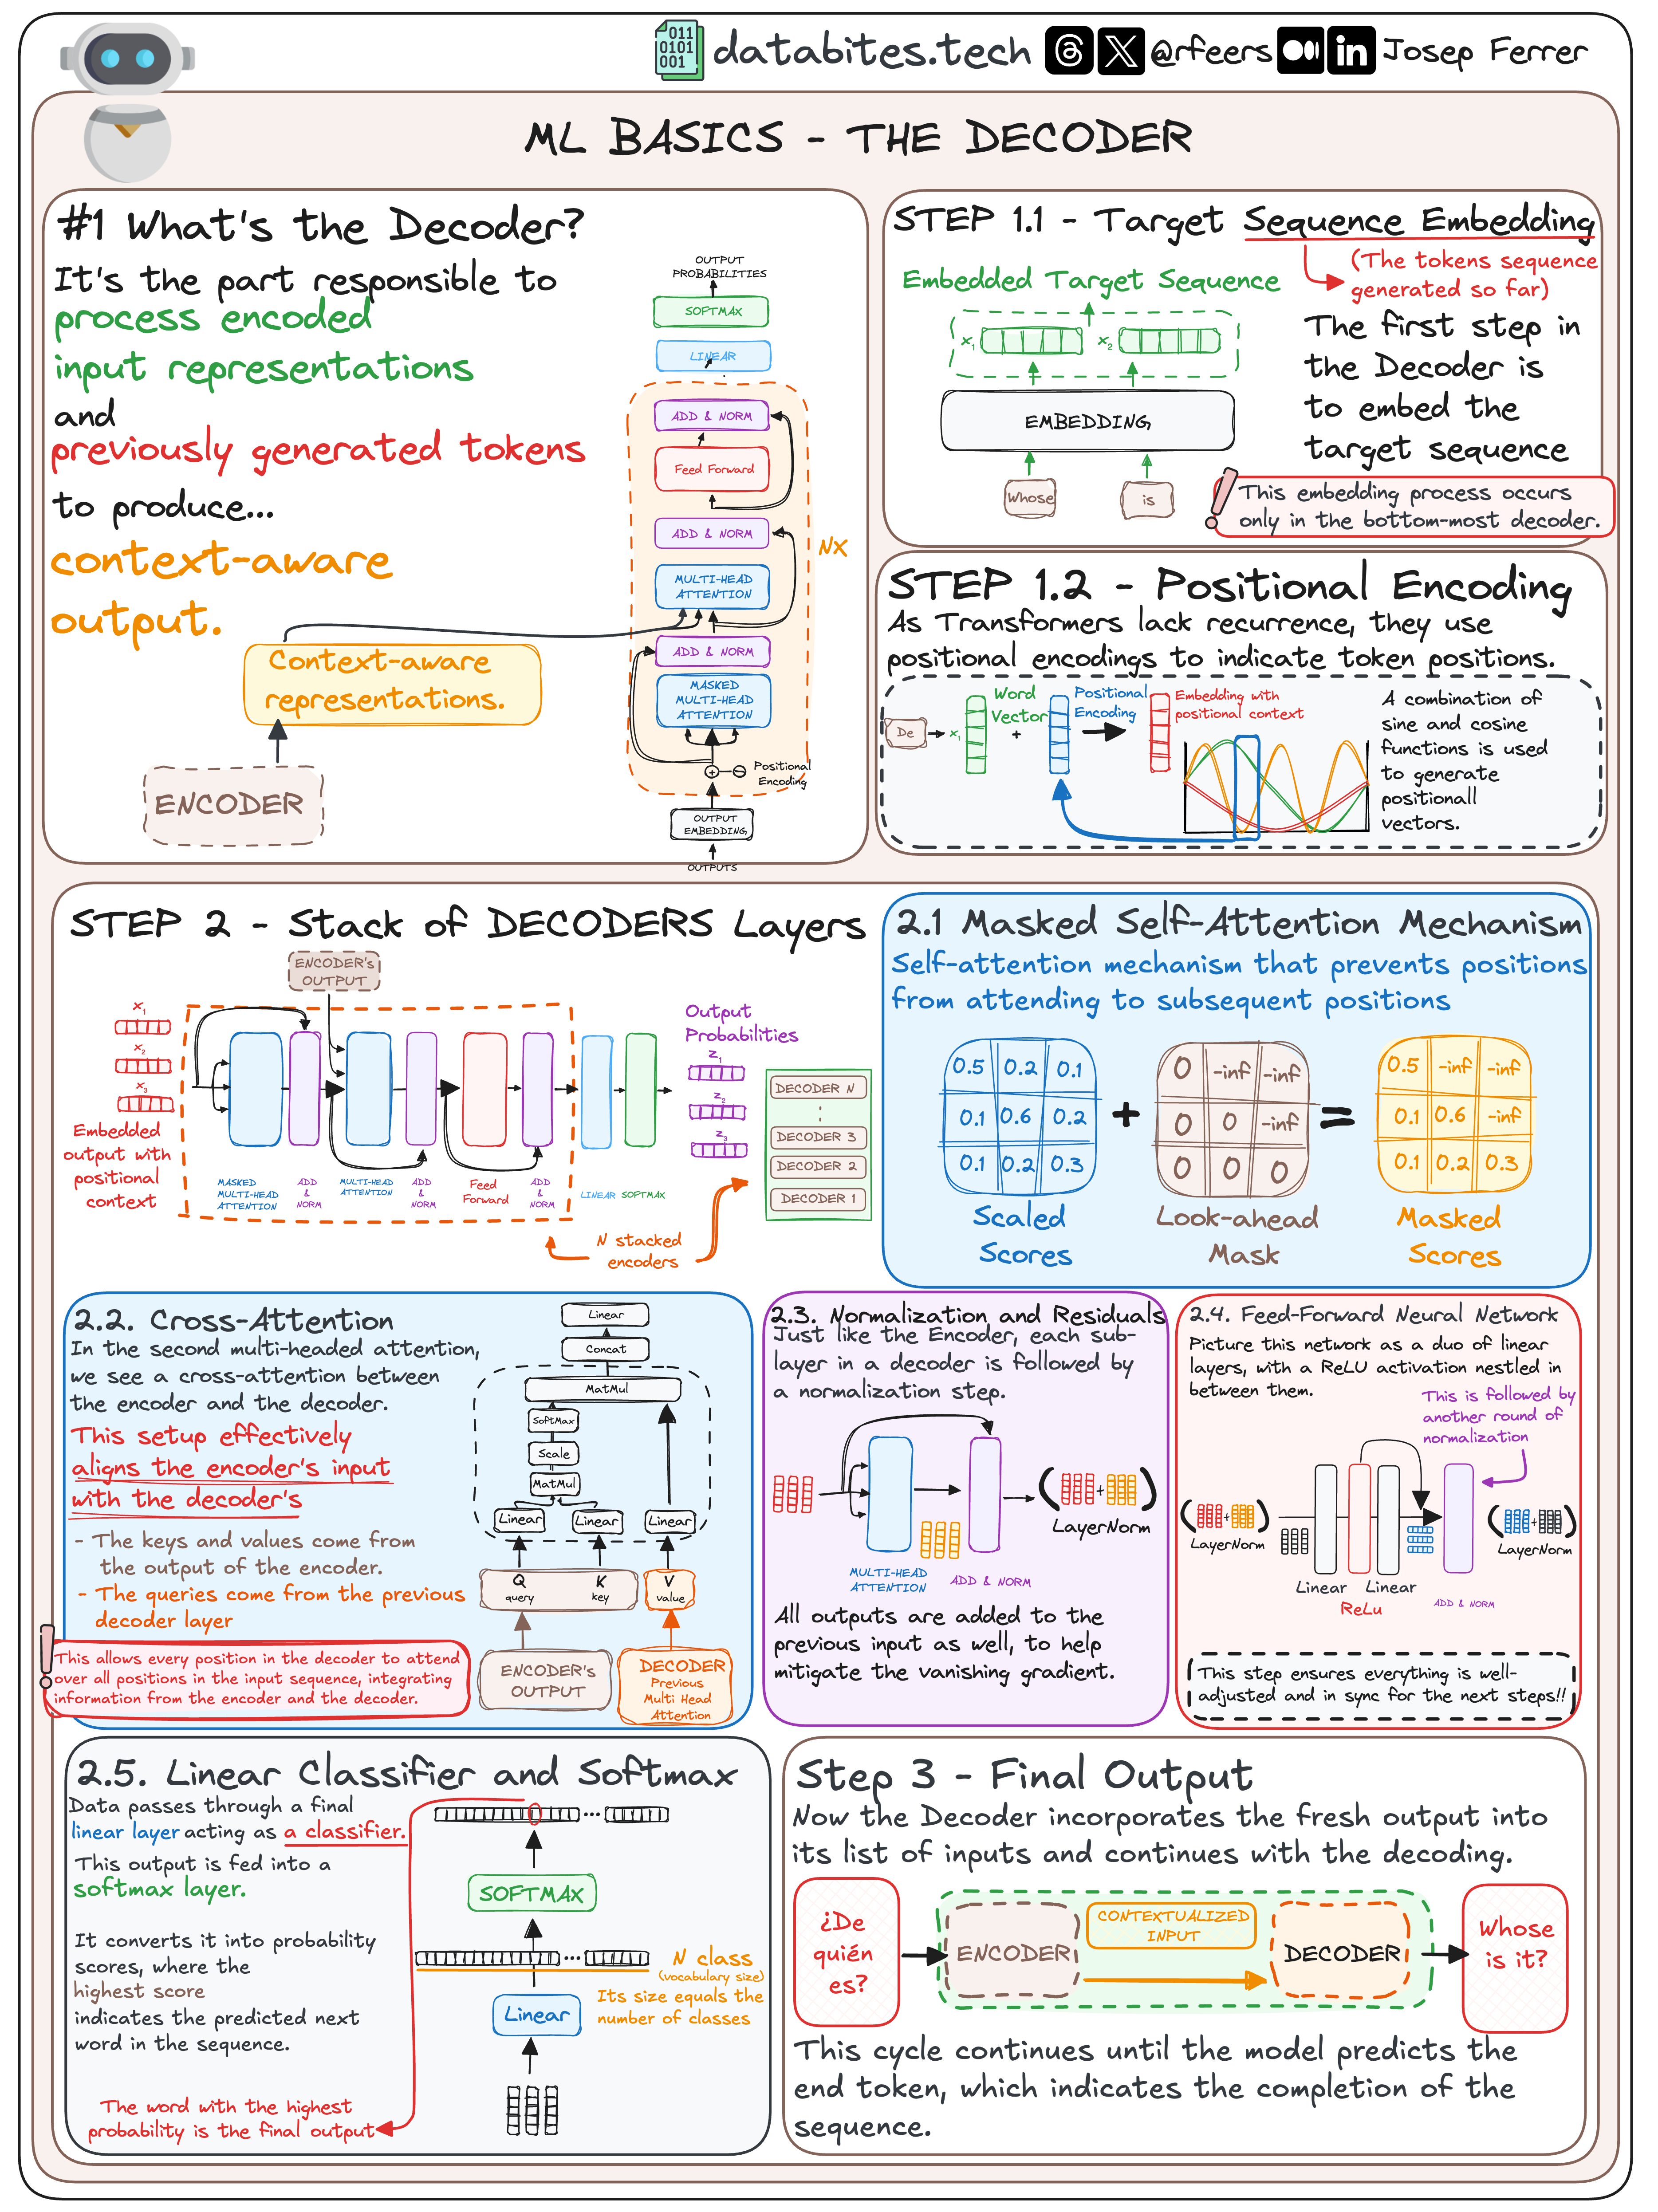 011
0101
001
databites.tech
@rfeers
Josep Ferrer
ML BASICS - THE DECODER
#1 What's the Decoder?
It's the part responsible to
process encoded
input representations
and
previously generated tokens
to produce...
context-aware
output.
Context-aware
representations.
ENCODER
OUTPUT
PROBABILITIES
SOFTMAX
LINEAR
ADD & NORM
Feed Forward
ADD & NORM
NX
MULTI-HEAD
ATTENTION
ADD & NORM
MASKED
MULTI-HEAD
ATTENTION
Positional
Encoding
OUTPUT
EMBEDDING
OUTPUTS
STEP 1.1 - Target Sequence Embedding
(The tokens sequence
generated so far)
Embedded Target Sequence
x1
x2
EMBEDDING
Whose
is
The first step in
the Decoder is
to embed the
target sequence
This embedding process occurs
only in the bottom-most decoder.
STEP 1.2 - Positional Encoding
As Transformers lack recurrence, they use
positional encodings to indicate token positions.
De
x1
Word
Vector
+
Positional
Encoding
Embedding with
positional context
A combination of
sine and cosine
functions is used
to generate
positionall
vectors.
STEP 2 - Stack of DECODERS Layers
ENCODER's
OUTPUT
x1
x2
x3
Embedded
output with
positional
context
MASKED
MULTI-HEAD
ATTENTION
ADD
&
NORM
MULTI-HEAD
ATTENTION
ADD
&
NORM
Feed
Forward
ADD
&
NORM
LINEAR
SOFTMAX
Output
Probabilities
z1
z2
z3
DECODER N
DECODER 3
DECODER 2
DECODER 1
N stacked
encoders
2.1 Masked Self-Attention Mechanism
Self-attention mechanism that prevents positions
from attending to subsequent positions
0.5 0.2 0.1
0.1 0.6 0.2
0.1 0.2 0.3
Scaled
Scores
+
0 -inf -inf
0 0 -inf
0 0 0
Look-ahead
Mask
=
0.5 -inf -inf
0.1 0.6 -inf
0.1 0.2 0.3
Masked
Scores
2.2. Cross-Attention
In the second multi-headed attention,
we see a cross-attention between
the encoder and the decoder.
This setup effectively
aligns the encoder's input
with the decoder's
- The keys and values come from
the output of the encoder.
- The queries come from the previous
decoder layer
This allows every position in the decoder to attend
over all positions in the input sequence, integrating
information from the encoder and the decoder.
Linear
Concat
MatMul
SoftMax
Scale
MatMul
Linear
Linear
Linear
Q
query
K
key
V
value
ENCODER's
OUTPUT
DECODER
Previous
Multi Head
Attention
2.3. Normalization and Residuals
Just like the Encoder, each sub-
layer in a decoder is followed by
a normalization step.
+
LayerNorm
MULTI-HEAD
ATTENTION
ADD & NORM
All outputs are added to the
previous input as well, to help
mitigate the vanishing gradient.
2.4. Feed-Forward Neural Network
Picture this network as a duo of linear
layers, with a ReLU activation nestled in
between them.
This is followed by
another round of
normalization
+
LayerNorm
Linear
ReLu
Linear
ADD & NORM
+
LayerNorm
This step ensures everything is well-
adjusted and in sync for the next steps!!
2.5. Linear Classifier and Softmax
Data passes through a final
linear layer acting as a classifier.
This output is fed into a
softmax layer.
It converts it into probability
scores, where the
highest score
indicates the predicted next
word in the sequence.
The word with the highest
probability is the final output
...
SOFTMAX
...
N class
(vocabulary size)
Its size equals the
number of classes
Linear
Step 3 - Final Output
Now the Decoder incorporates the fresh output into
its list of inputs and continues with the decoding.
¿De
quién
es?
ENCODER
CONTEXTUALIZED
INPUT
DECODER
Whose
is it?
This cycle continues until the model predicts the
end token, which indicates the completion of the
sequence.